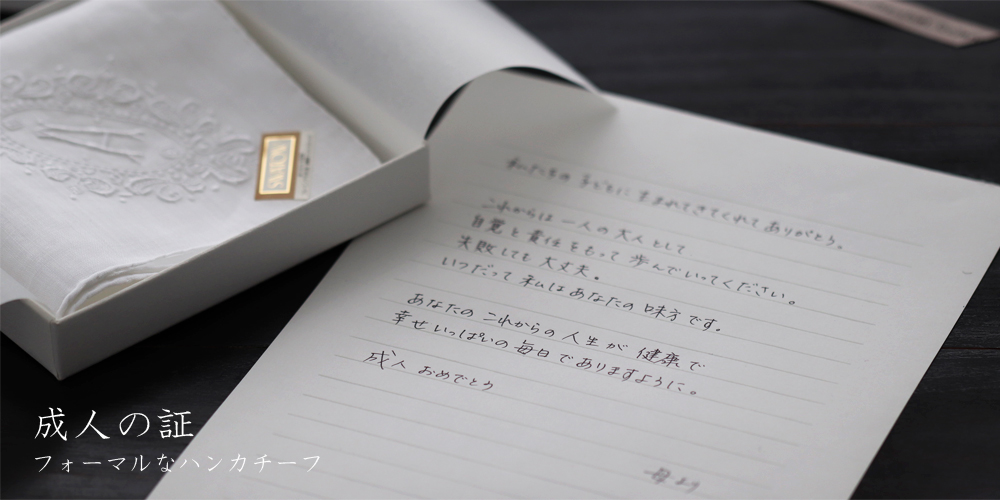 私たちの子どもに生まれてきてくれてありがとう。
これからは一人の大人として
自覚と責任をもって歩んでいってください。
失敗しても大丈夫。
いつだって私はあなたの味方です。
あなたのこれからの人生が健康で
幸せいっぱいの毎日でありますように。
成人おめでとう
母より
成人の証
フォーマルなハンカチーフ